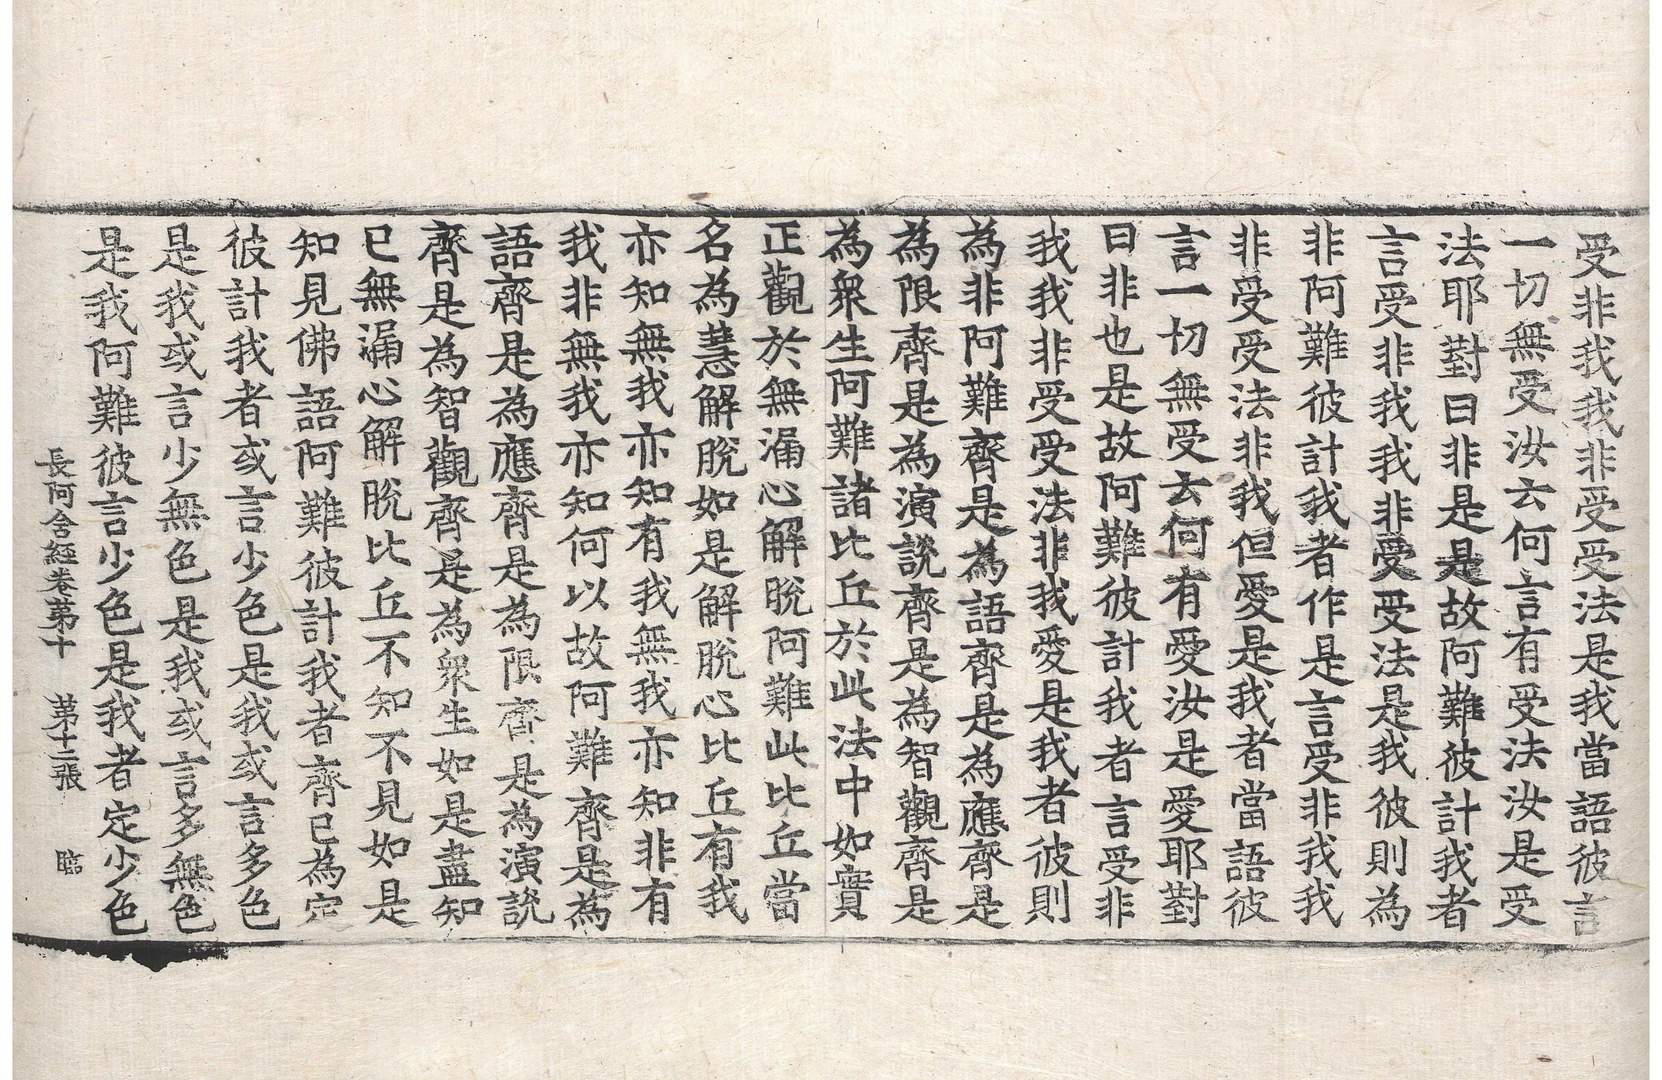 受非我我非受受法是我當語彼言
一切無受汝云何言有受法汝是受
法耶對曰非是是故阿難彼計我者
言受非我我非受受法是我彼則為
非阿難彼計我者作是言受非我我
非受受法非我但愛是我者當語彼
言一切無受云何有愛汝是愛耶對
曰非也是故阿難彼計我者言受非
我我非受受法非我愛是我者彼則
為非阿難齊是為語齊是為應齊是
為限齊是為演說齊是為智觀齊是
為衆生阿難諸比丘於此法中如實
正觀於無漏心解脫阿難此比丘當
名為慧解脫如是解脫心比丘有我
亦知無我亦知有我無我亦知非有
我非無我亦知何以故阿難齊是為
語齊是為應齊是為限齊是為演說
齊是為智觀齊是為衆生如是盡知
已無漏心解脫比丘不知不見如是
知見佛語阿難彼計我者齊已為定
彼計我者或言少色是我或言多色
是我或言少無色是我或言多無色
是我阿難彼言少色是我者定少色
長阿含經卷第十 第十二張 臨